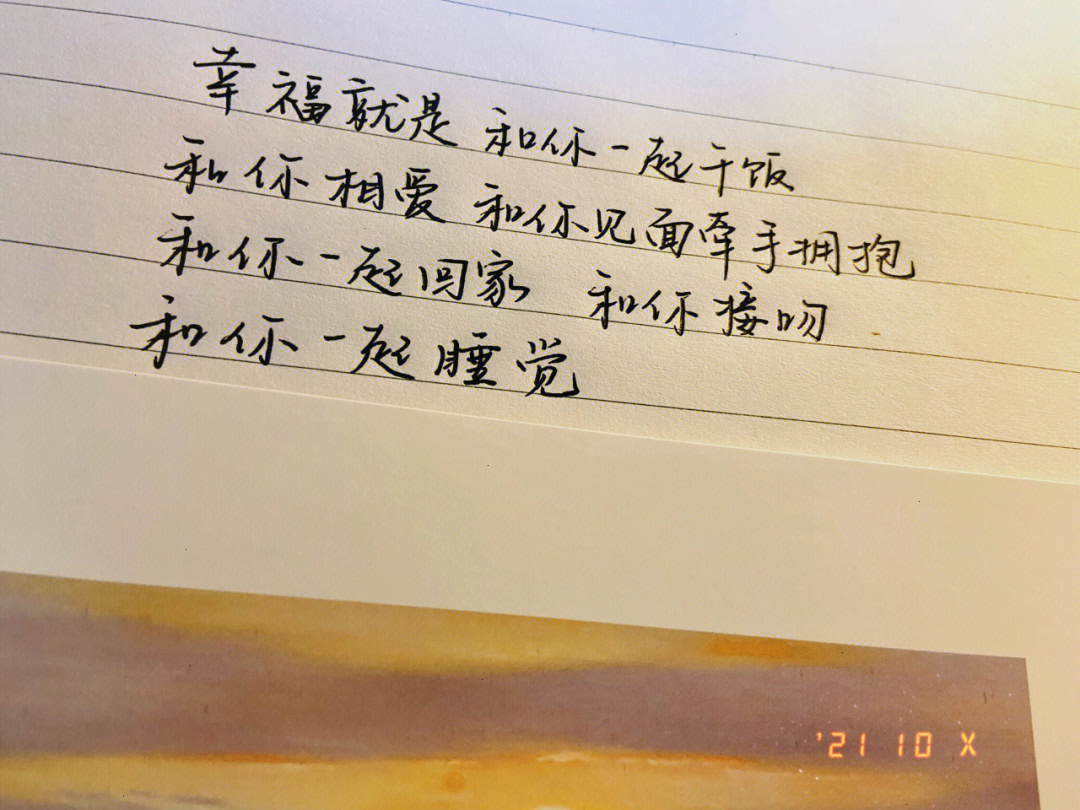 幸福就是 和你一起干饭
和你相爱 和你见面牵手拥抱
和你一起回家 和你接吻
和你一起睡觉
'21 10 X